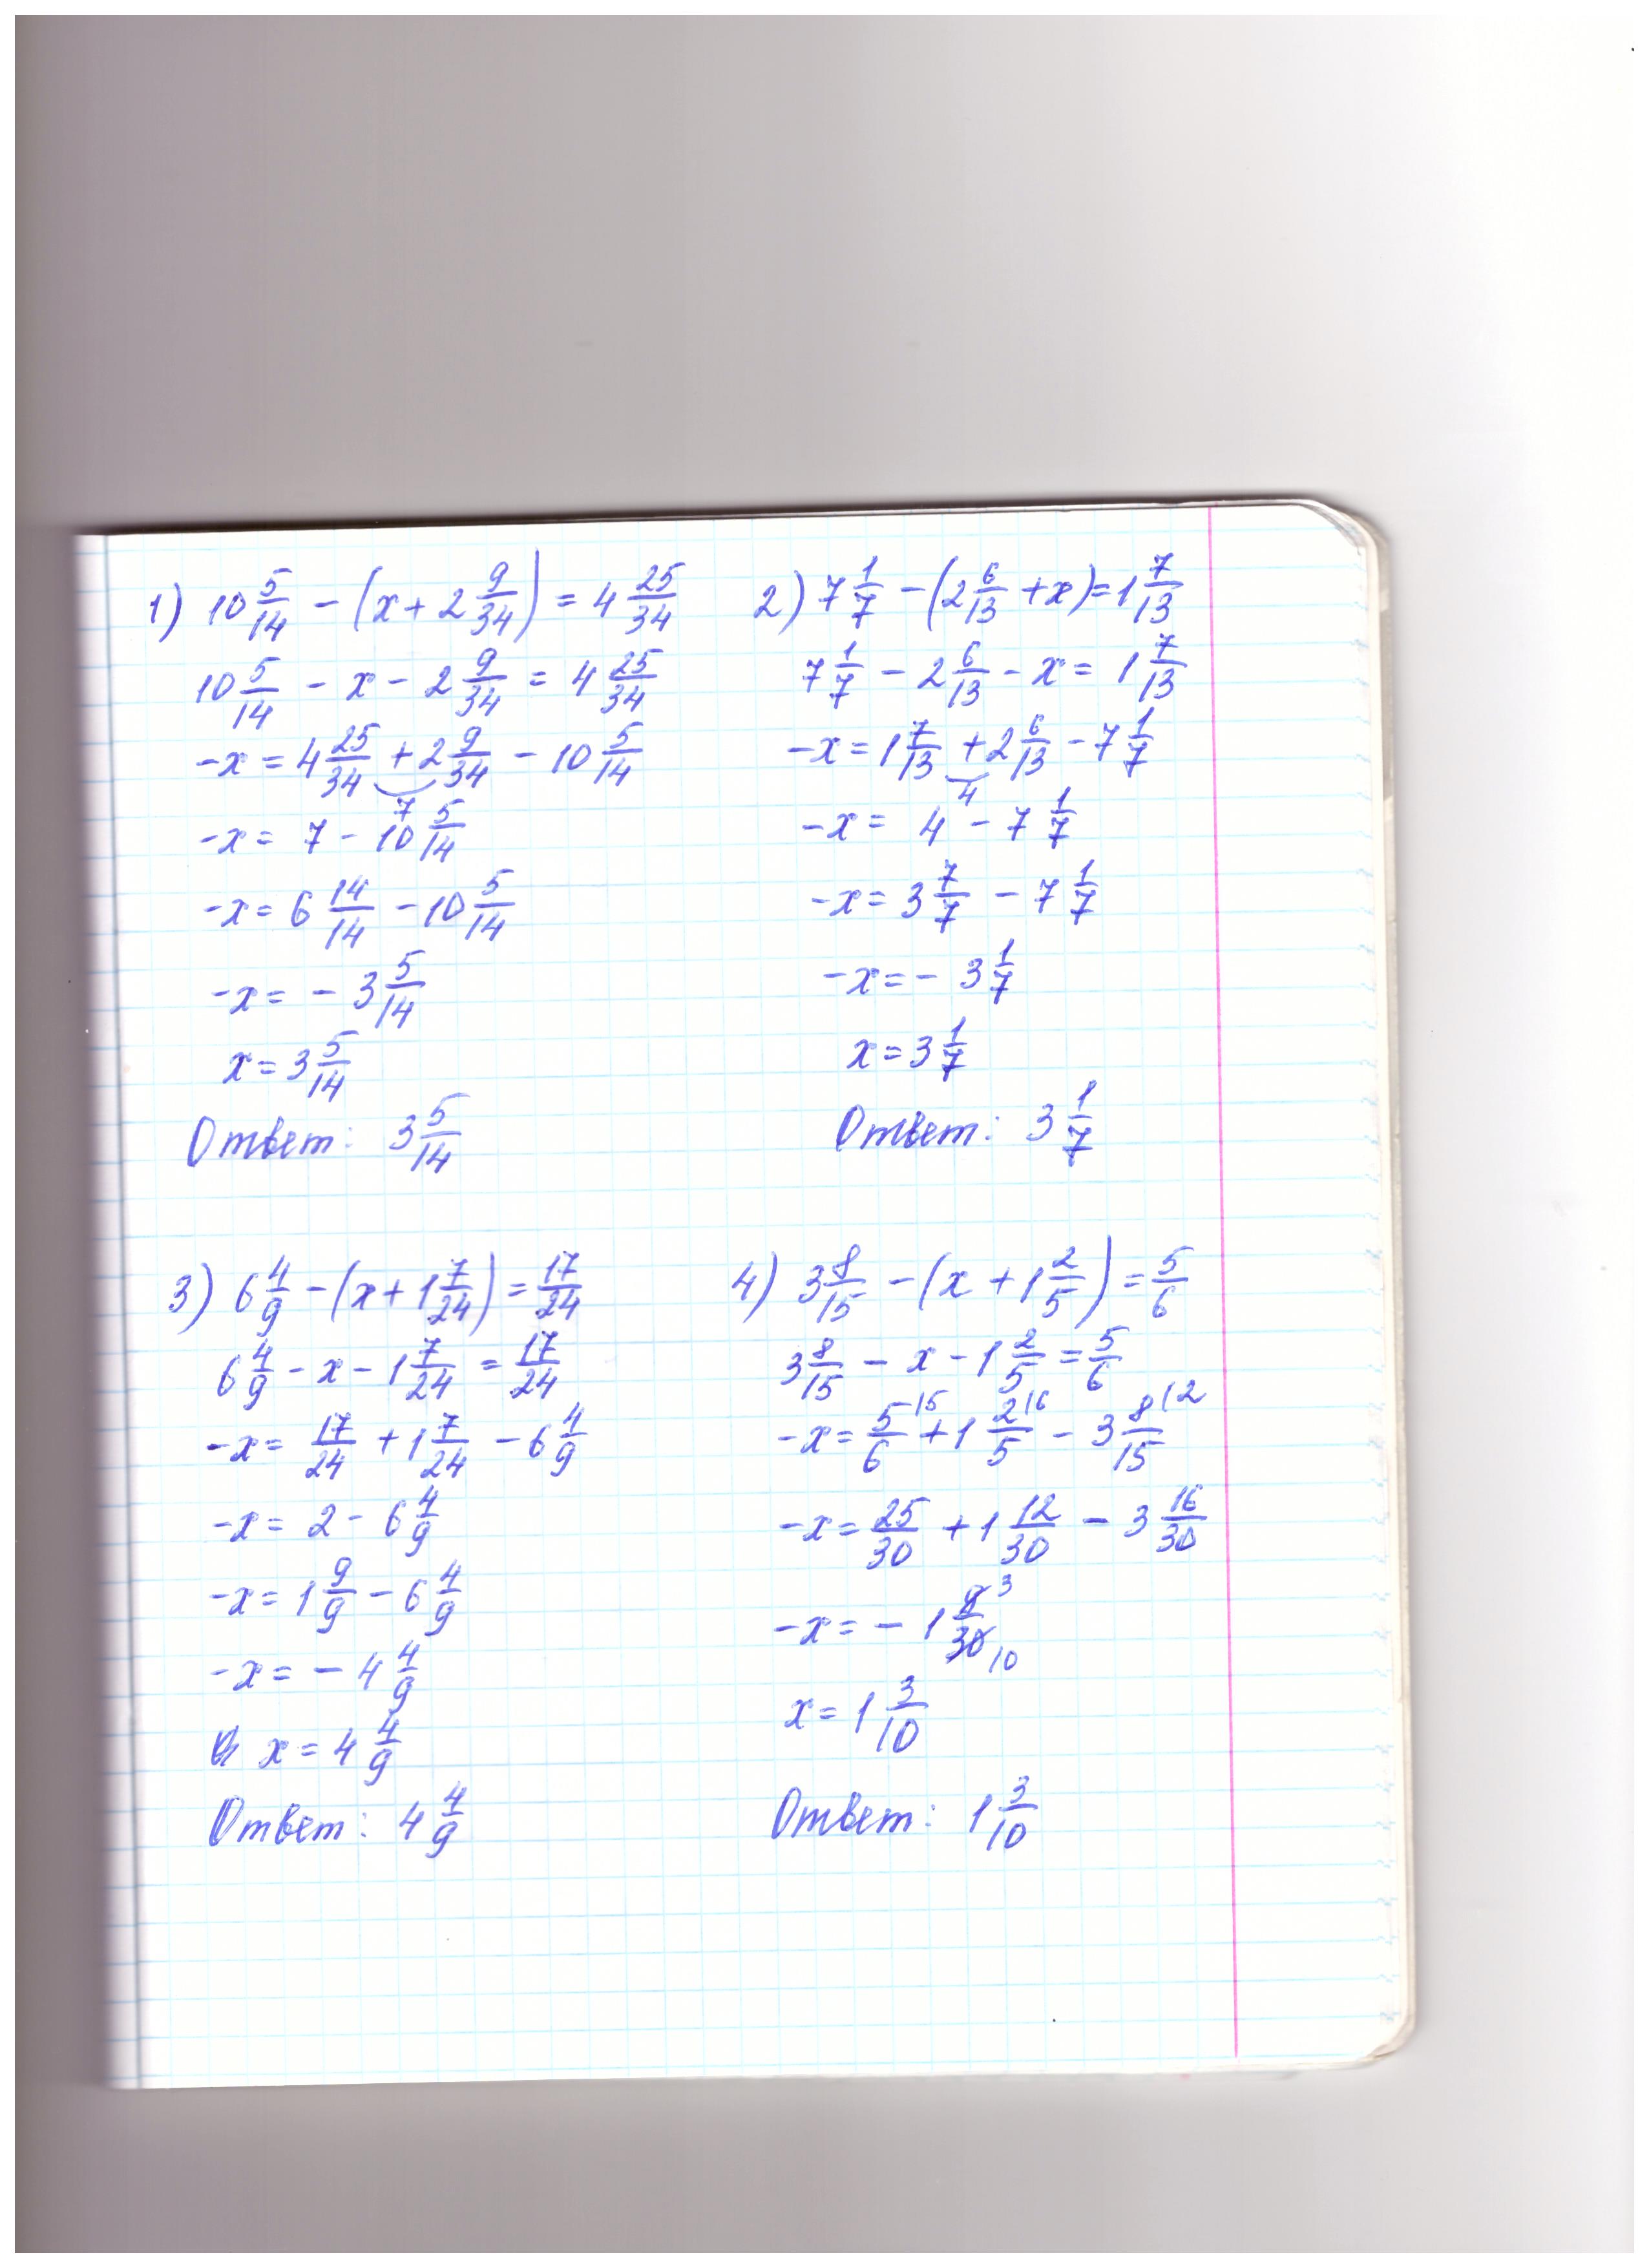 1) 10 5/14 - (x + 2 9/34) = 4 25/34
10 5/14 - x - 2 9/34 = 4 25/34
-x = 4 25/34 + 2 9/34 - 10 5/14
7
-x = 7 - 10 5/14
-x = 6 14/14 - 10 5/14
-x = - 3 5/14
x = 3 5/14
Ответ: 3 5/14
2) 7 1/7 - (2 6/13 + x) = 1 7/13
7 1/7 - 2 6/13 - x = 1 7/13
-x = 1 7/13 + 2 6/13 - 7 1/7
4
-x = 4 - 7 1/7
-x = 3 7/7 - 7 1/7
-x = - 3 1/7
x = 3 1/7
Ответ: 3 1/7
3) 6 4/9 - (x + 1 7/24) = 17/24
6 4/9 - x - 1 7/24 = 17/24
-x = 17/24 + 1 7/24 - 6 4/9
-x = 2 - 6 4/9
-x = 1 9/9 - 6 4/9
-x = - 4 4/9
x = 4 4/9
Ответ: 4 4/9
4) 3 8/15 - (x + 1 2/5) = 5/6
3 8/15 - x - 1 2/5 = 5/6
-x = 5/6 (5 + 1 2/5 (6 - 3 8/15 (2
-x = 25/30 + 1 12/30 - 3 16/30
-x = - 1 9/30 3 10
x = 1 3/10
Ответ: 1 3/10